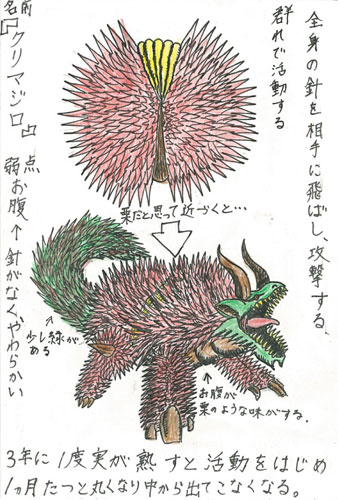 全身の針を相手に飛ばし、攻撃する。
群れで活動する
名前
『クリマジロ』
弱点
お腹↑針がなく、やわらかい
栗だと思って近づくと…
少し緑がある
お腹が
栗のような味がする。
3年に1度実が熟すと活動をはじめ
1ヵ月たつと丸くなり中から出てこなくなる。